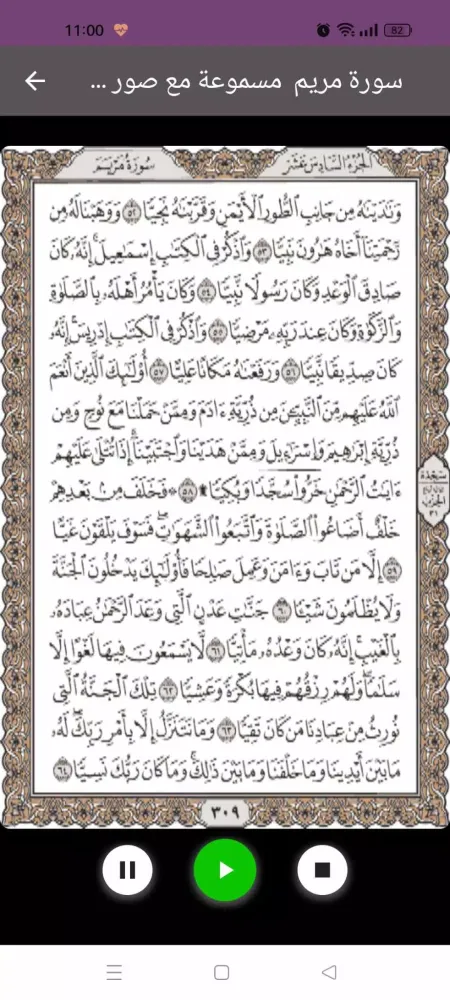 11:00
82
سورة مريم مسموعة مع صور ...
سُورَةُ مَرْيَم
الجُزْءُ السَّادِسَ عَشَرَ
وَنَٰدَيْنَٰهُ مِن جَانِبِ ٱلطُّورِ ٱلْأَيْمَنِ وَقَرَّبْنَٰهُ نَجِيًّا ٥٢ وَوَهَبْنَا لَهُۥ مِن
رَّحْمَتِنَآ أَخَاهُ هَٰرُونَ نَبِيًّا ٥٣ وَٱذْكُرْ فِى ٱلْكِتَٰبِ إِسْمَٰعِيلَ ۚ إِنَّهُۥ كَانَ
صَادِقَ ٱلْوَعْدِ وَكَانَ رَسُولًا نَّبِيًّا ٥٤ وَكَانَ يَأْمُرُ أَهْلَهُۥ بِٱلصَّلَوٰةِ
وَٱلزَّكَوٰةِ وَكَانَ عِندَ رَبِّهِۦ مَرْضِيًّا ٥٥ وَٱذْكُرْ فِى ٱلْكِتَٰبِ إِدْرِيسَ ۚ إِنَّهُۥ
كَانَ صِدِّيقًا نَّبِيًّا ٥٦ وَرَفَعْنَٰهُ مَكَانًا عَلِيًّا ٥٧ أُو۟لَٰٓئِكَ ٱلَّذِينَ أَنْعَمَ
ٱللَّهُ عَلَيْهِم مِّنَ ٱلنَّبِيِّـۧنَ مِن ذُرِّيَّةِ ءَادَمَ وَمِمَّنْ حَمَلْنَا مَعَ نُوحٍ وَمِن
ذُرِّيَّةِ إِبْرَٰهِيمَ وَإِسْرَٰٓءِيلَ وَمِمَّنْ هَدَيْنَا وَٱجْتَبَيْنَآ ۚ إِذَا تُتْلَىٰ عَلَيْهِمْ
ءَايَٰتُ ٱلرَّحْمَٰنِ خَرُّوا۟ سُجَّدًا وَبُكِيًّا ۩ ٥٨ ۞ فَخَلَفَ مِنۢ بَعْدِهِمْ
خَلْفٌ أَضَاعُوا۟ ٱلصَّلَوٰةَ وَٱتَّبَعُوا۟ ٱلشَّهَوَٰتِ ۖ فَسَوْفَ يَلْقَوْنَ غَيًّا
٥٩ إِلَّا مَن تَابَ وَءَامَنَ وَعَمِلَ صَٰلِحًا فَأُو۟لَٰٓئِكَ يَدْخُلُونَ ٱلْجَنَّةَ
وَلَا يُظْلَمُونَ شَيْـًٔا ٦٠ جَنَّٰتِ عَدْنٍ ٱلَّتِى وَعَدَ ٱلرَّحْمَٰنُ عِبَادَهُۥ
بِٱلْغَيْبِ ۚ إِنَّهُۥ كَانَ وَعْدُهُۥ مَأْتِيًّا ٦١ لَّا يَسْمَعُونَ فِيهَا لَغْوًا إِلَّا
سَلَٰمًا ۖ وَلَهُمْ رِزْقُهُمْ فِيهَا بُكْرَةً وَعَشِيًّا ٦٢ تِلْكَ ٱلْجَنَّةُ ٱلَّتِى
نُورِثُ مِنْ عِبَادِنَا مَن كَانَ تَقِيًّا ٦٣ وَمَا نَتَنَزَّلُ إِلَّا بِأَمْرِ رَبِّكَ ۖ لَهُۥ
مَا بَيْنَ أَيْدِينَا وَمَا خَلْفَنَا وَمَا بَيْنَ ذَٰلِكَ ۚ وَمَا كَانَ رَبُّكَ نَسِيًّا ٦٤
سجدة
الحزب
٣١
٣٠٩